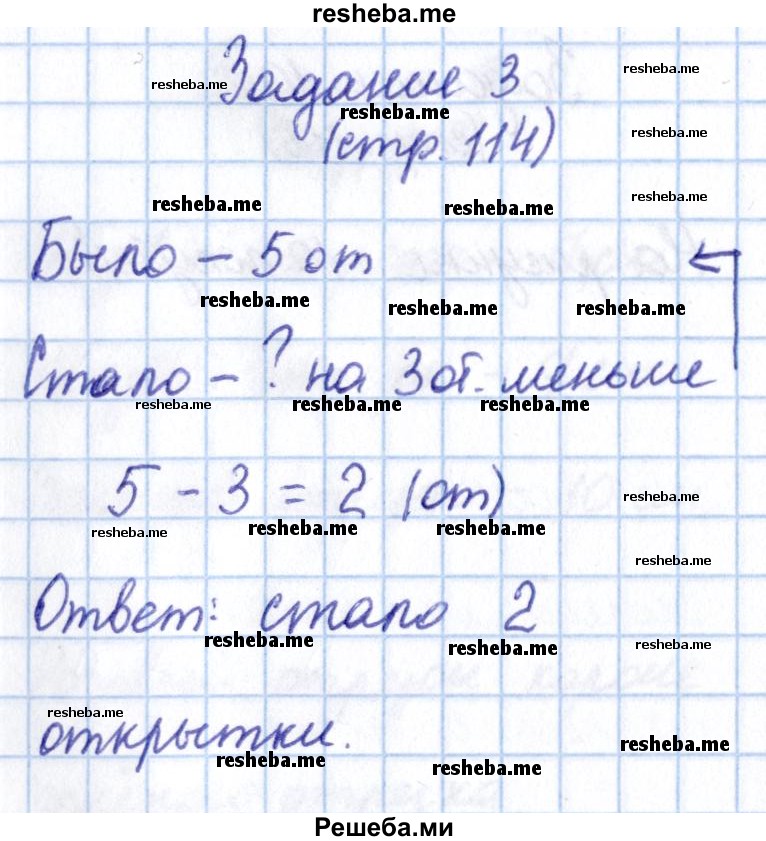 resheba.me
Задание 3
resheba.me resheba.me
resheba.me
(стр. 114)
resheba.me
resheba.me resheba.me resheba.me
Было – 5 от
resheba.me resheba.me resheba.me
Стало – ? на 3 от. меньше
resheba.me resheba.me resheba.me
5 - 3 = 2 (от)
resheba.me
resheba.me resheba.me resheba.me
resheba.me
Ответ: стало 2
resheba.me resheba.me resheba.me
resheba.me
открытки.
resheba.me resheba.me resheba.me
Решеба.ми